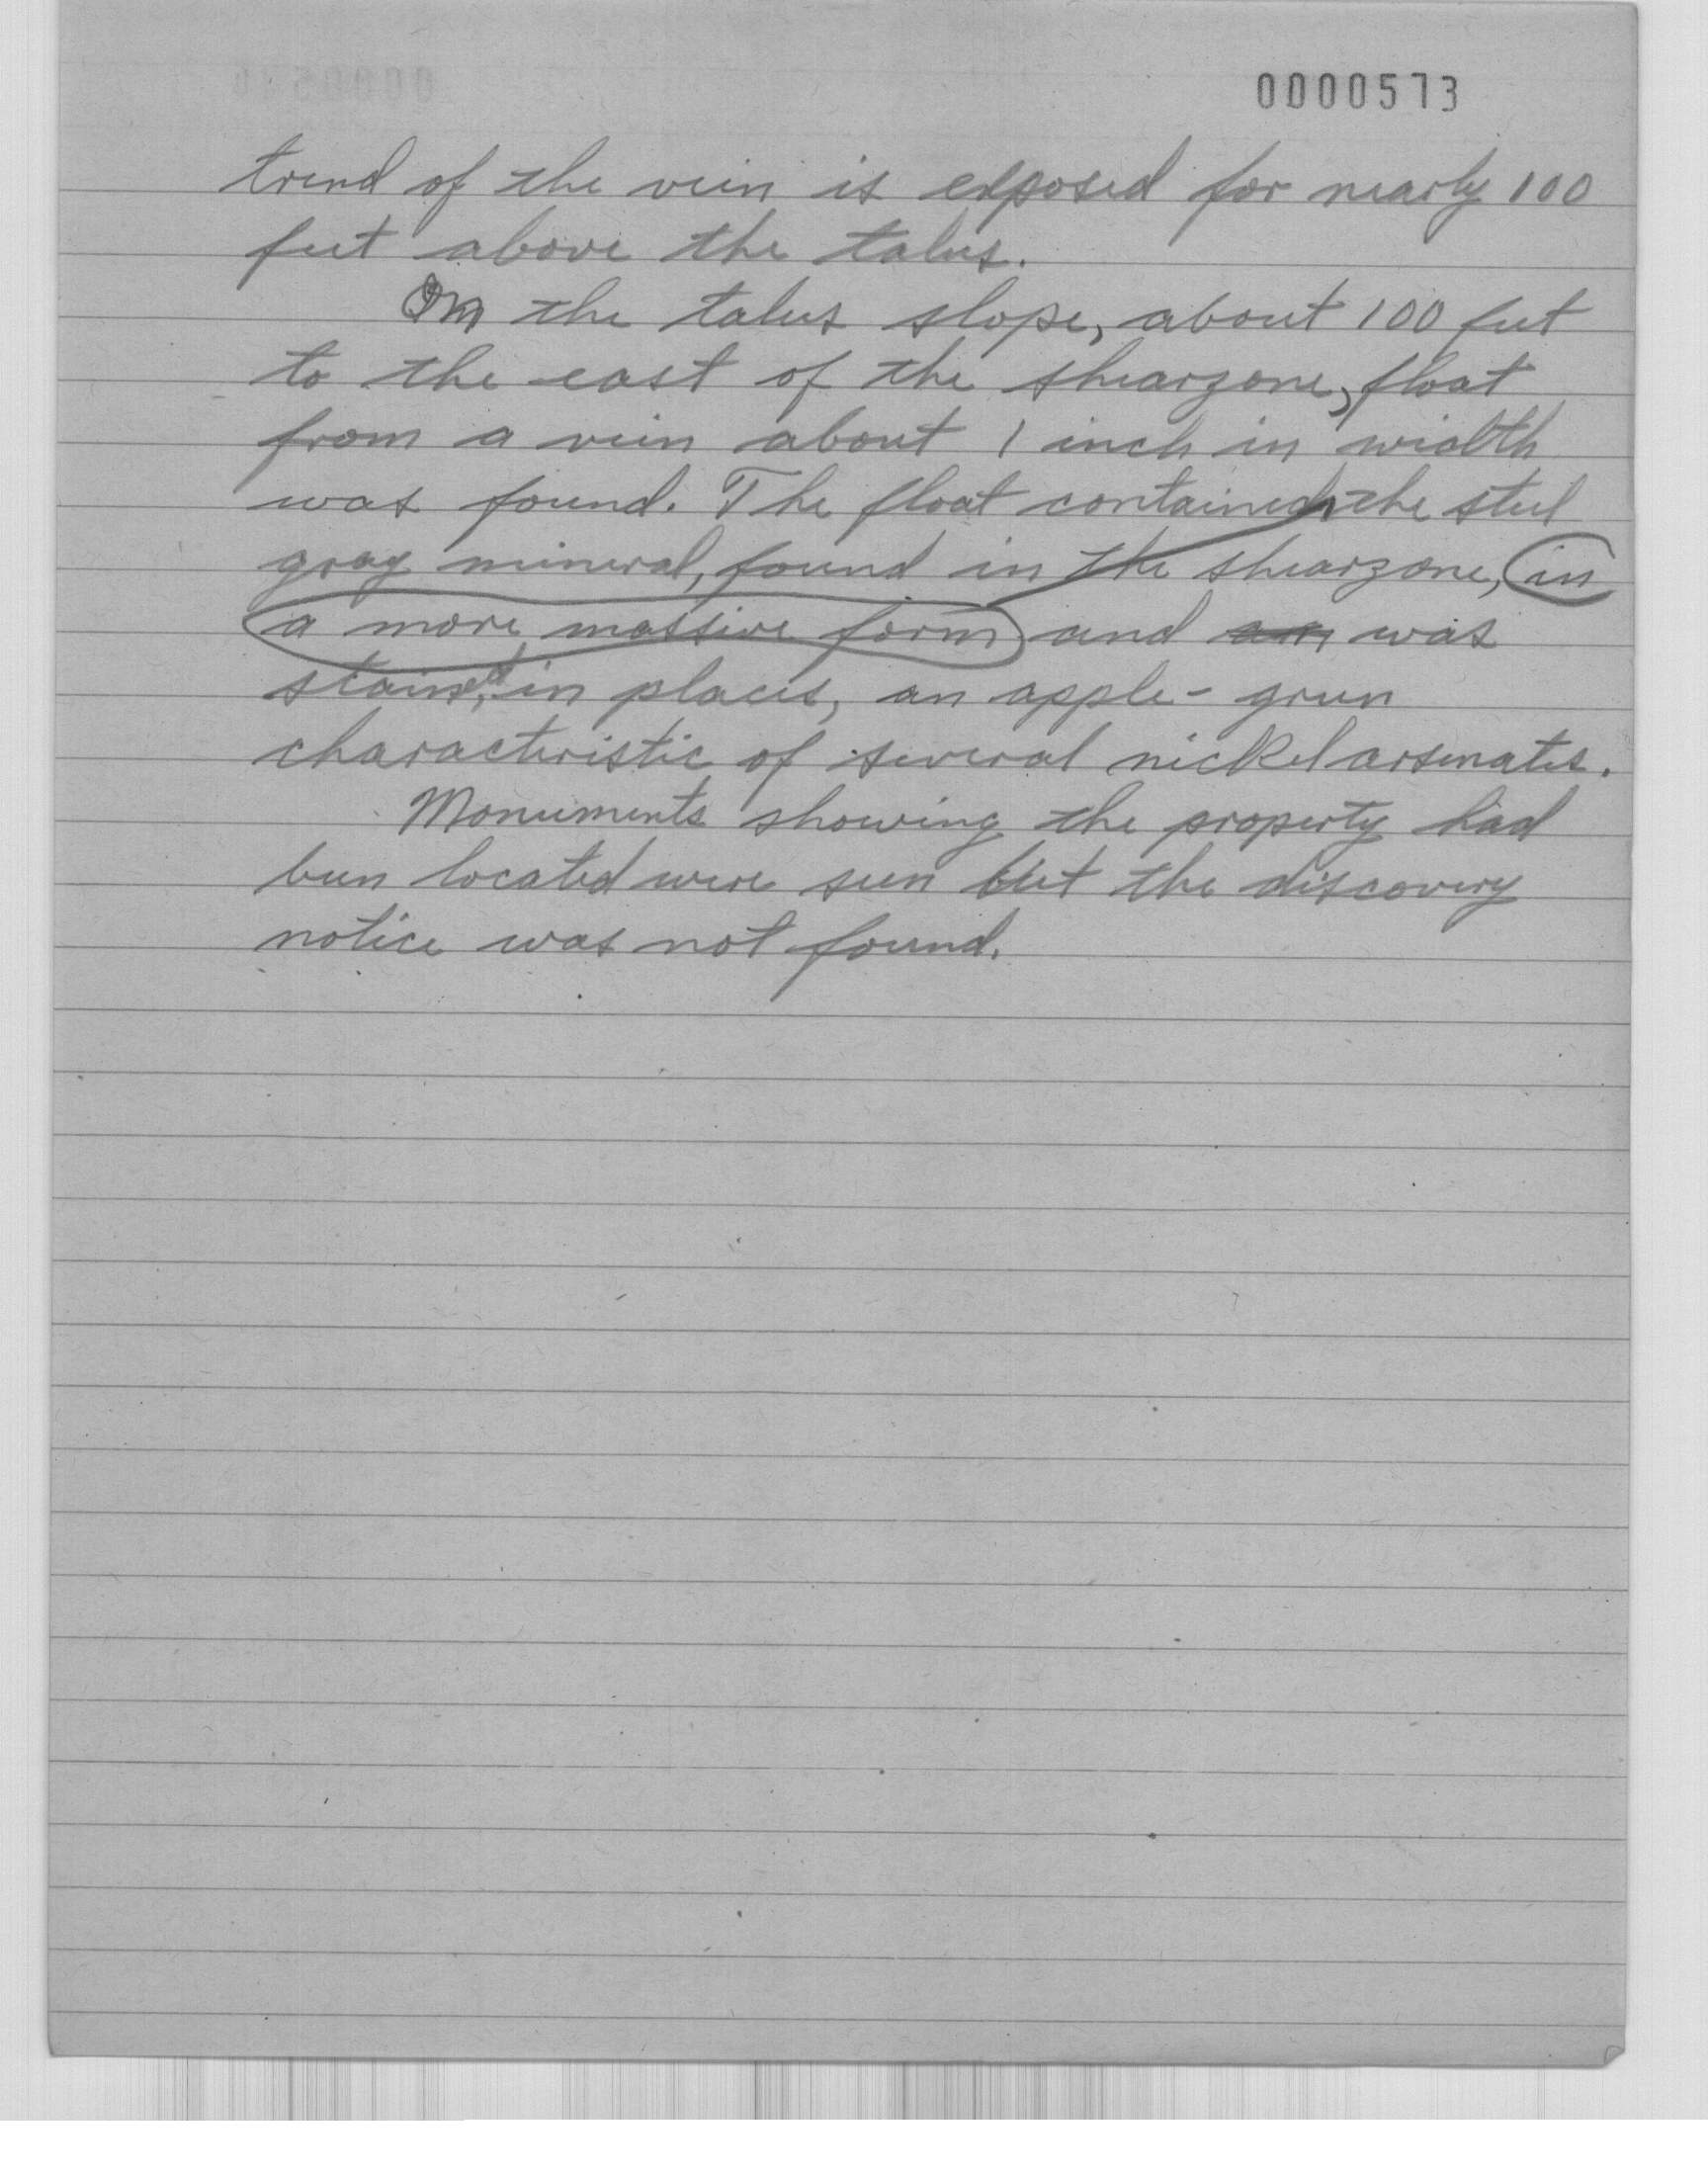 0000573
trend of the vein is exposed for nearly 100
feet above the talus.
On the talus slope, about 100 feet
to the east of the shearzone, float
from a vein about 1 inch in width
was found. The float contained the steel
gray mineral, found in the shearzone, in
a more massive form and was
stained, in places, an apple-green
characteristic of several nickel arsenates.
Monuments showing the property had
been located were seen but the discovery
notice was not found.